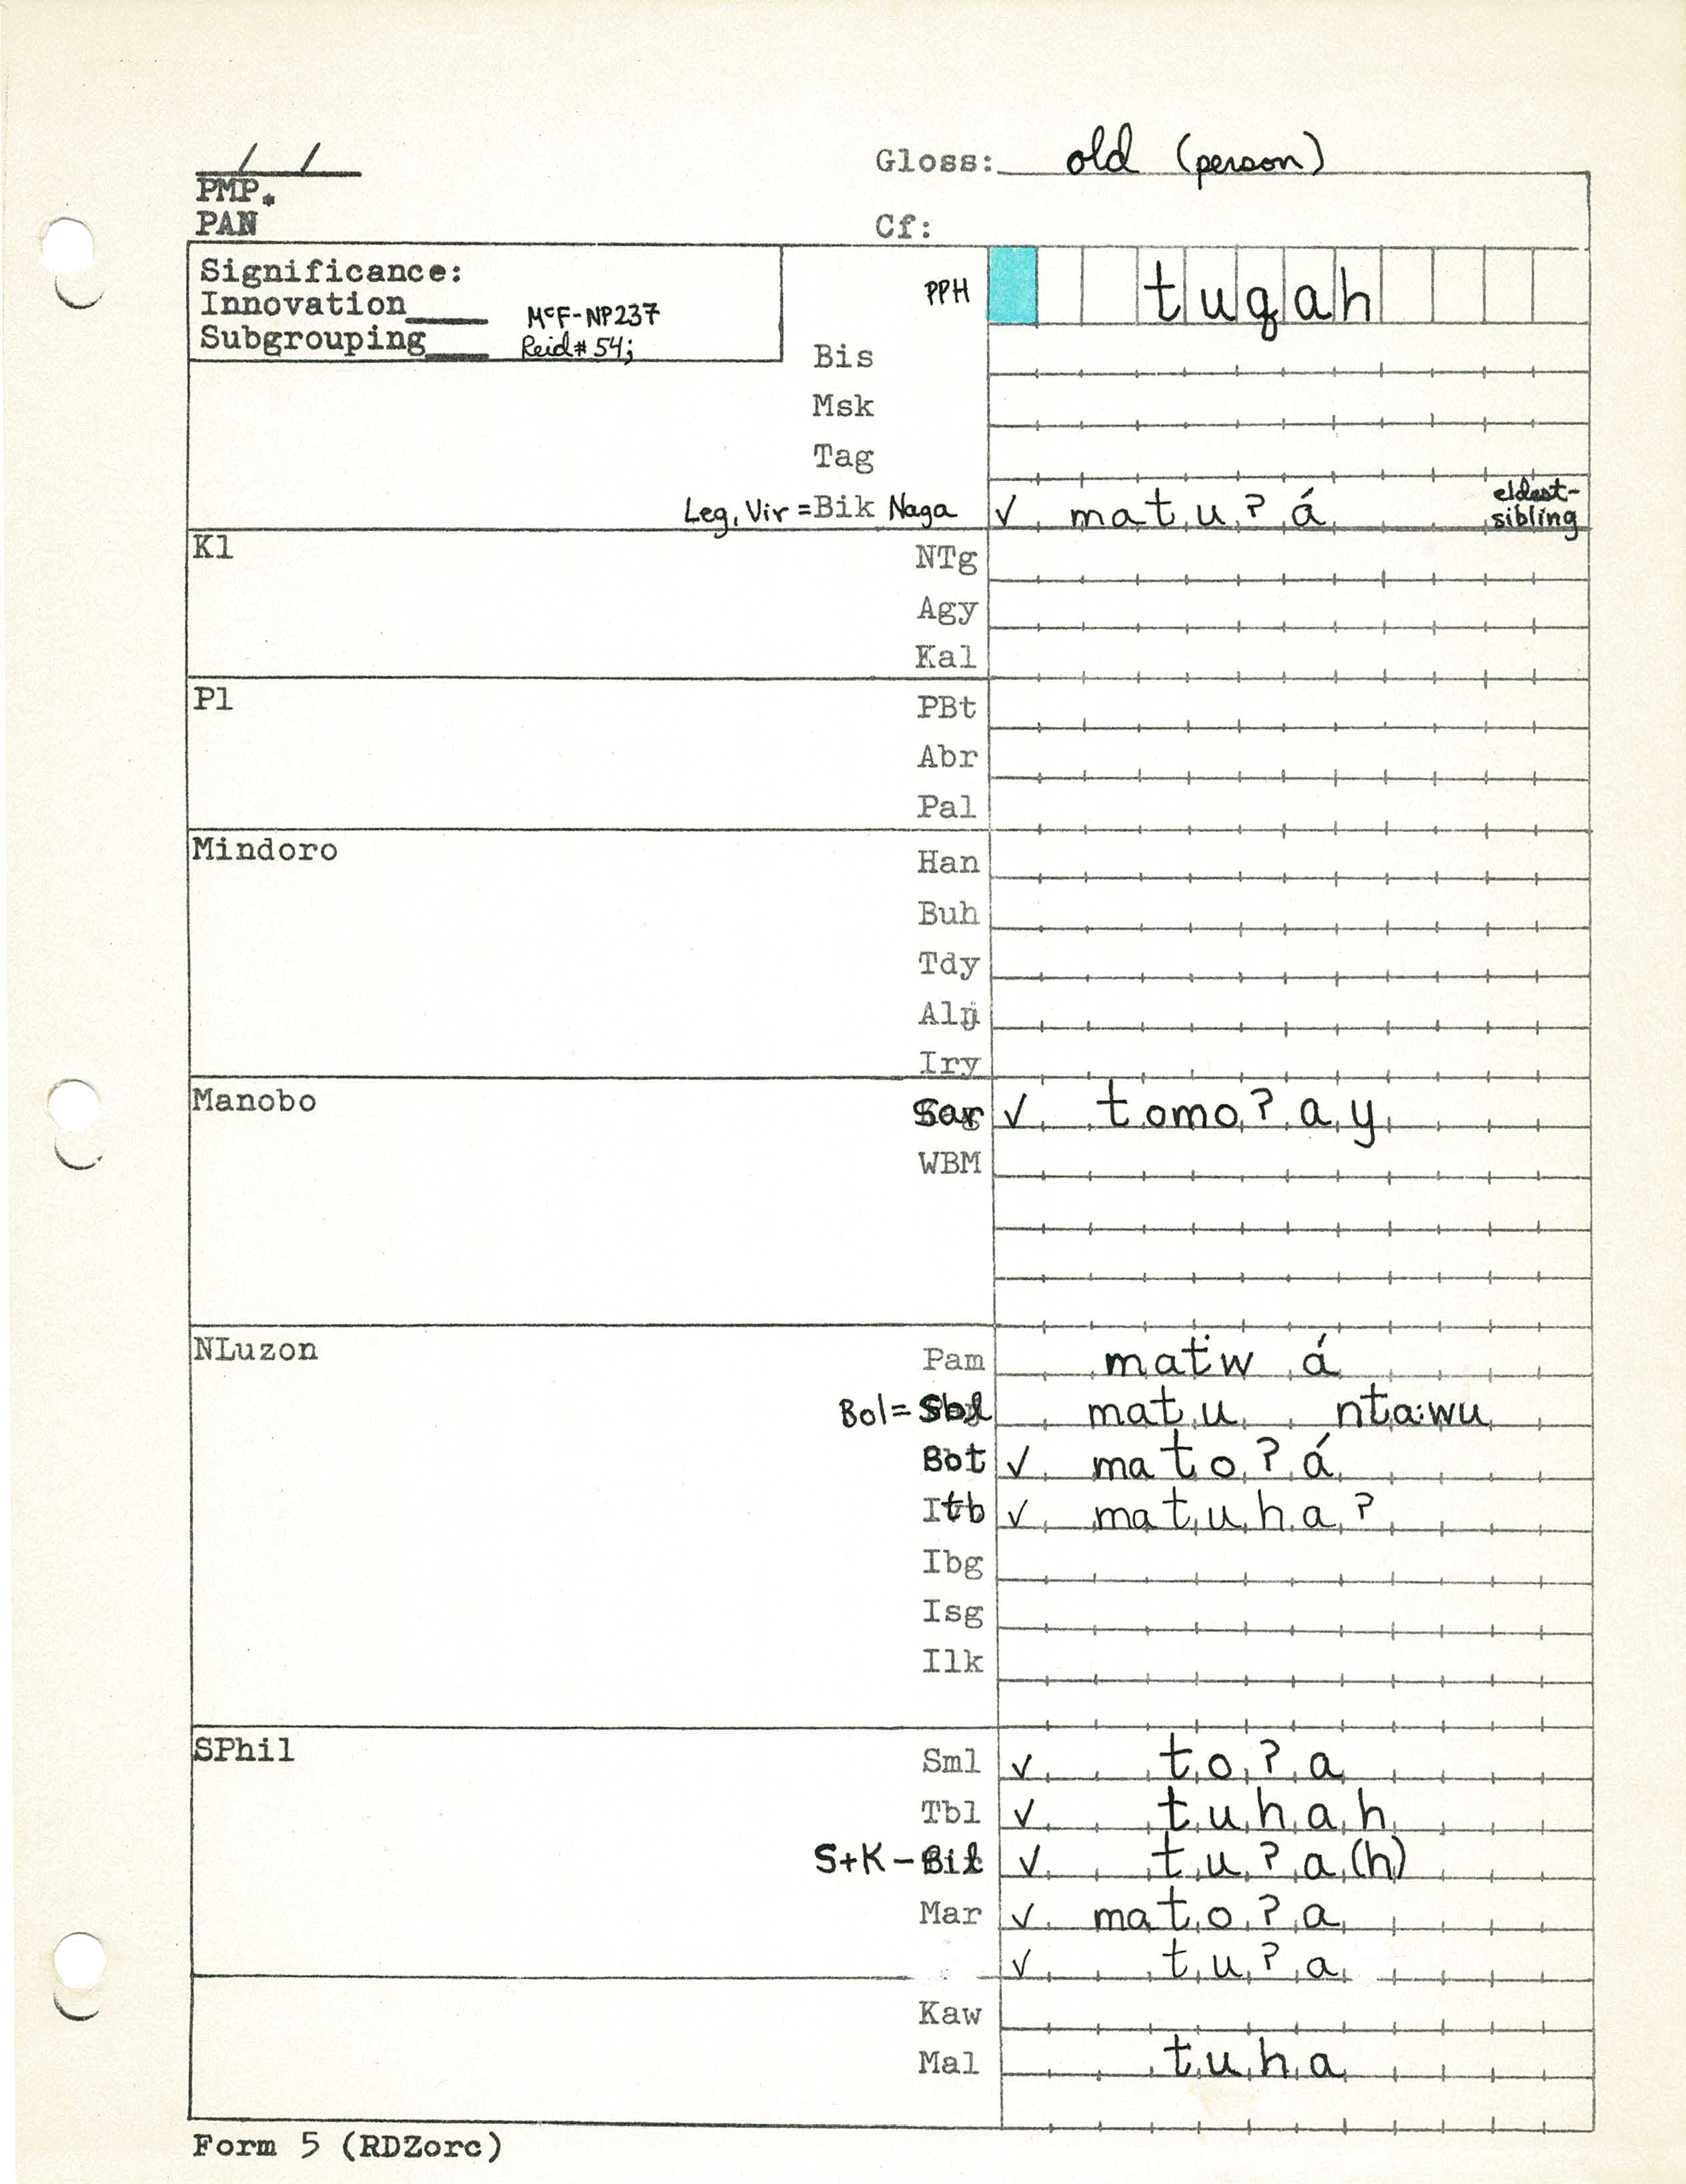 Gloss: old (person)
PMP.
PAN
Cf:
Significance:
Innovation____ McF-NP237
Subgrouping____ Reid#54;
PPH tuqah
Bis
Msk
Tag
Leg, Vir = Bik Naga ✓ matuʔá eldest-sibling
Kl
NTg
Agy
Kal
Pl
PBt
Abr
Pal
Mindoro
Han
Buh
Tdy
Iry
Manobo
Sar ✓ tomoʔay
WBM
NLuzon
Pam matwá
Bol = Sbl matu ntawu
Bot ✓ matoʔá
Itb ✓ matuhaʔ
Ibg
Isg
Ilk
SPhil
Sml ✓ toʔa
Tbl ✓ tuhah
S+K – Bil ✓ tuʔa(h)
Mar ✓ matoʔa
✓ tuʔa
Kaw
Mal tuha
Form 5 (RDZorc)